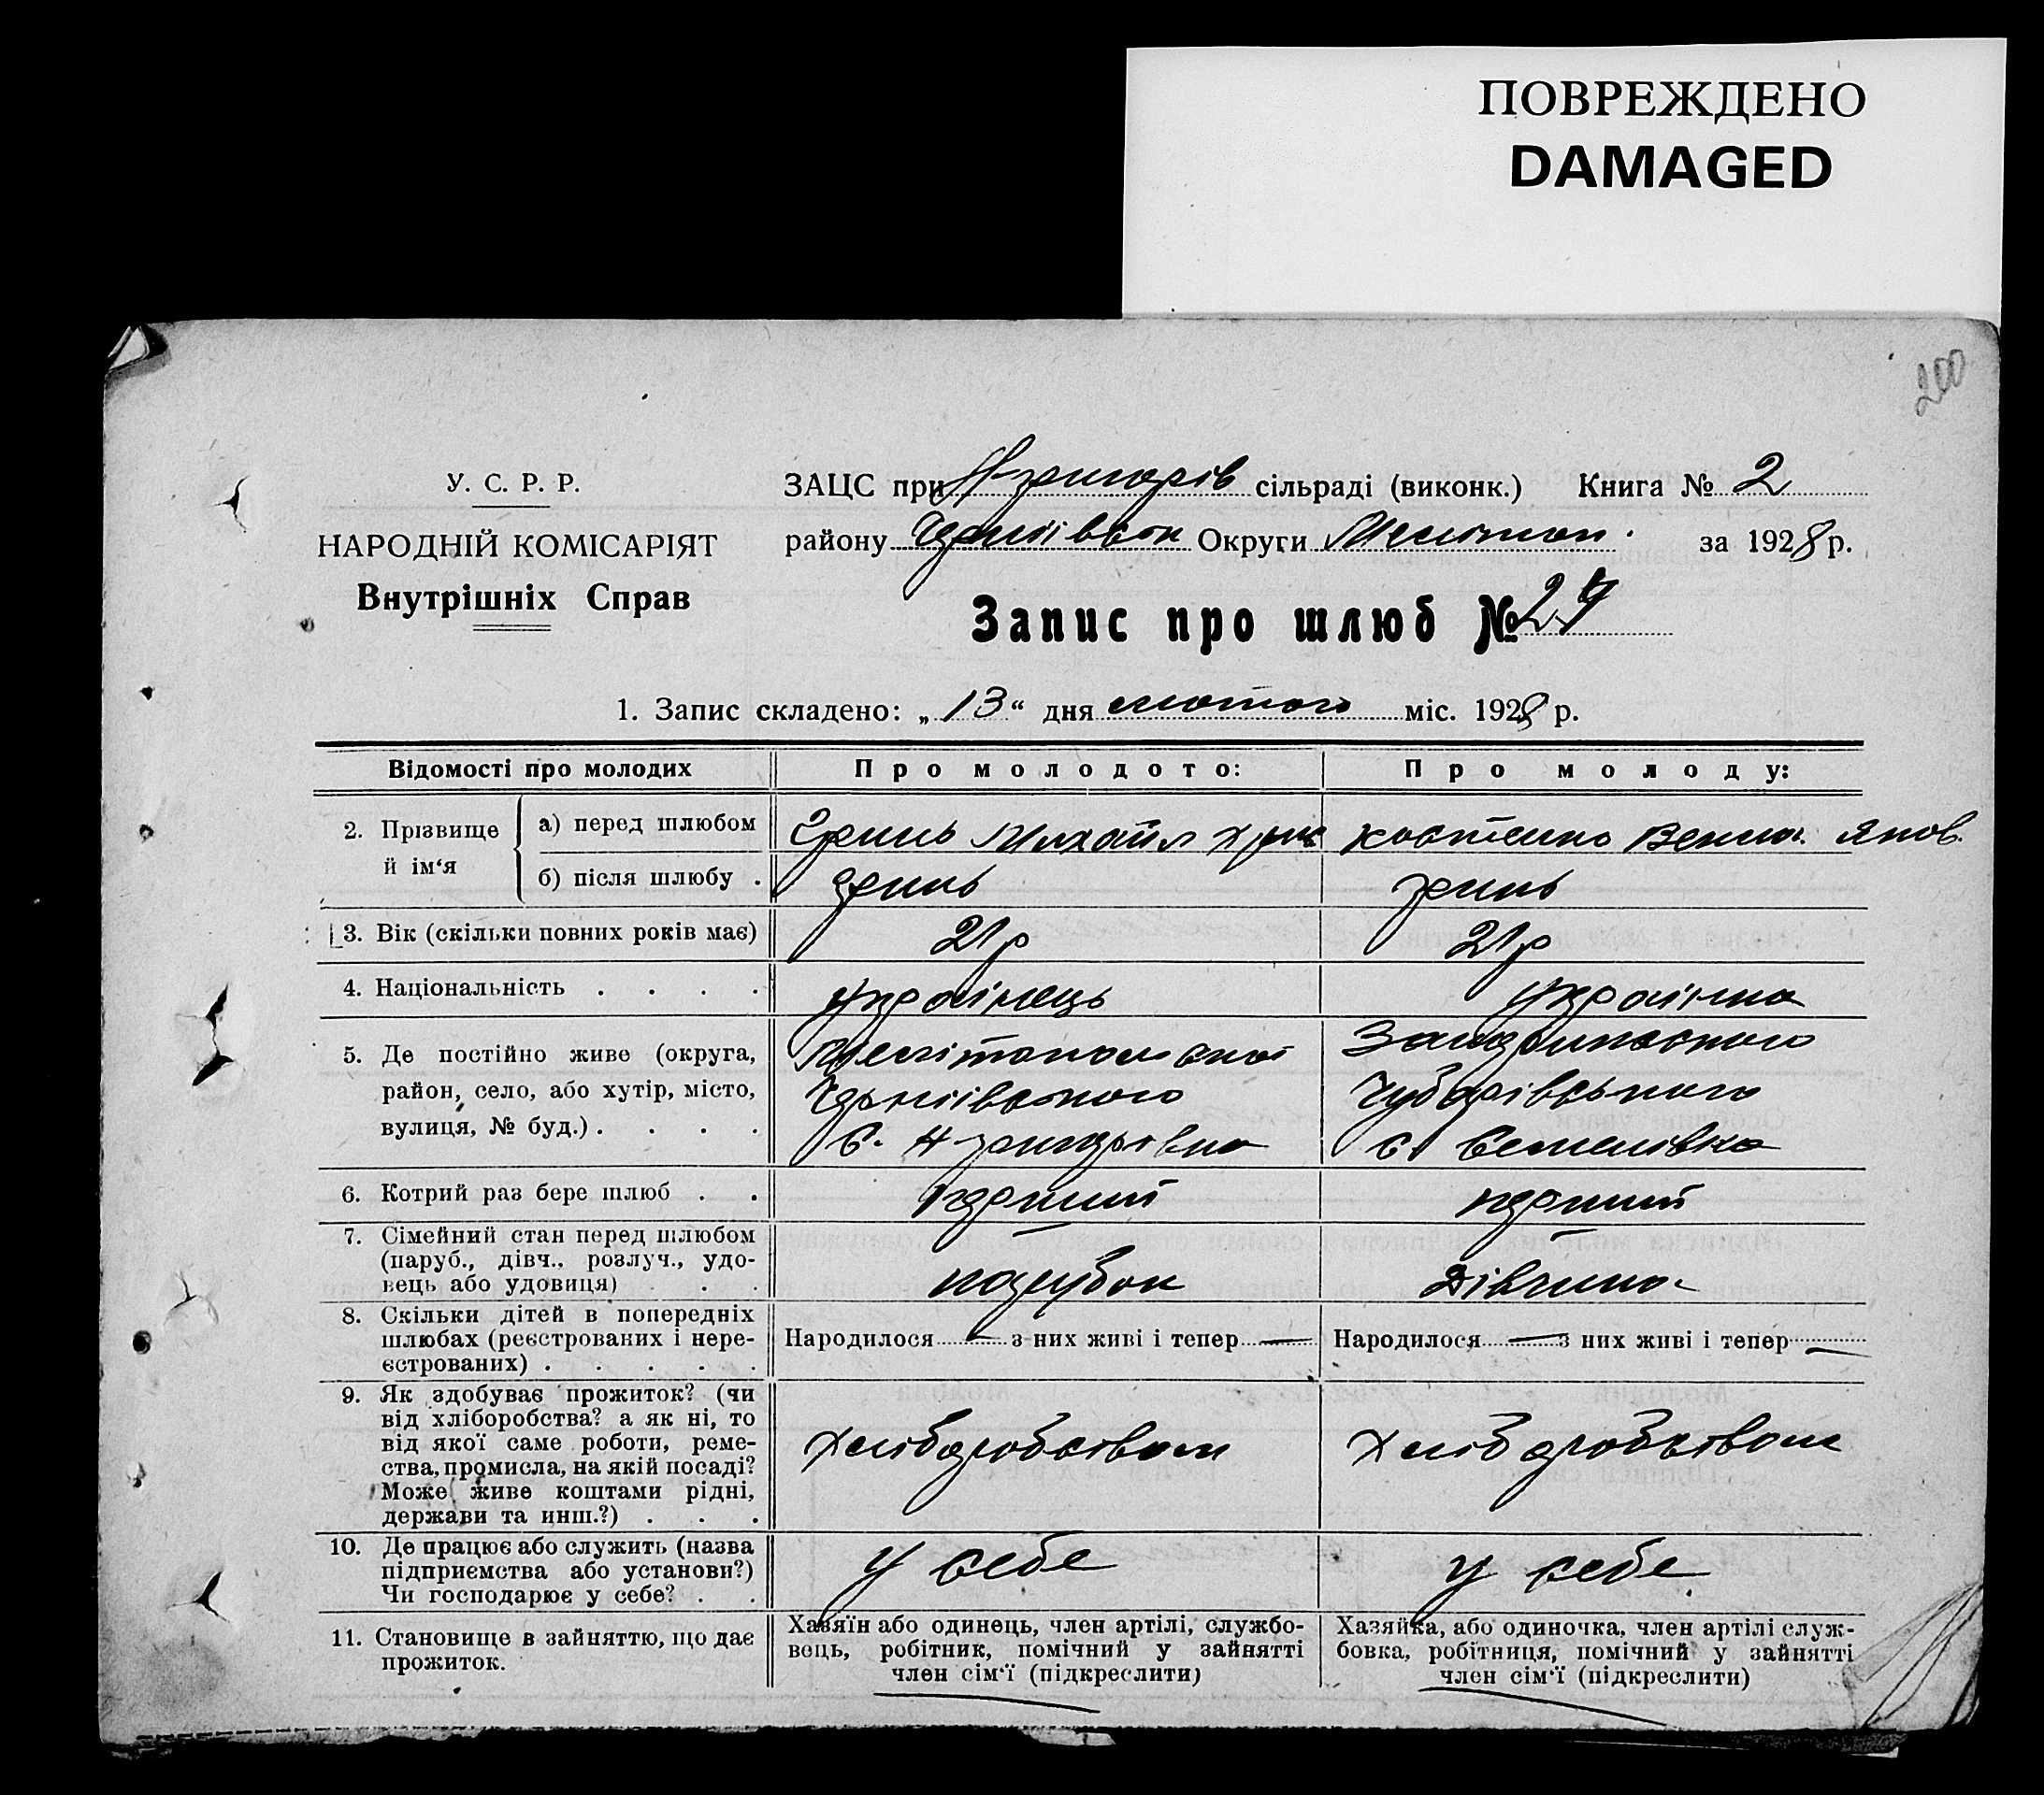 ПОВРЕЖДЕНО
DAMAGED
200
У. С. Р. Р.
НАРОДНІЙ КОМІСАРІЯТ
Внутрішніх Справ
ЗАЦС при сільраді (виконк.) Книга № 2
району Округи Мелітоп. за 1928 р.
Запис про шлюб № 24
1. Запис складено: „13“ дня лютого міс. 1928 р.
Відомості про молодих
Про молодого:
Про молоду:
2. Прізвище й ім‘я
а) перед шлюбом
Гринь Михайло Костенко Яков.
б) після шлюбу .
Гринь гринь
3. Вік (скільки повних років має) 21р 21р
4. Національність . . . . українець українка
5. Де постійно живе (округа, район, село, або хутір, місто, вулиця, № буд.) . . . .
Мелітопольської
с. Н григорівка
Чубарівського
с. Семенівка
6. Котрий раз бере шлюб . . перший перший
7. Сімейний стан перед шлюбом (паруб., дівч., розлуч., удовець або удовиця) . . . парубок Дівчина
8. Скільки дітей в попередніх шлюбах (реєстрованих і нереєстрованих) . . . . .
Народилося — з них живі і тепер —
Народилося — з них живі і тепер —
9. Як здобуває прожиток? (чи від хліборобства? а як ні, то від якої саме роботи, ремества, промисла, на якій посаді? Може живе коштами рідні, держави та инш.?) . . .
хліборобством хліборобством
10. Де працює або служить (назва підприємства або установи?) Чи господарює у себе? . .
у себе у себе
11. Становище в зайняттю, що дає прожиток.
Хазяїн або одинець, член артілі, службовець, робітник, помічний у зайнятті член сім‘ї (підкреслити)
Хазяйка, або одиночка, член артілі службовка, робітниця, помічний у зайнятті член сім‘ї (підкреслити)